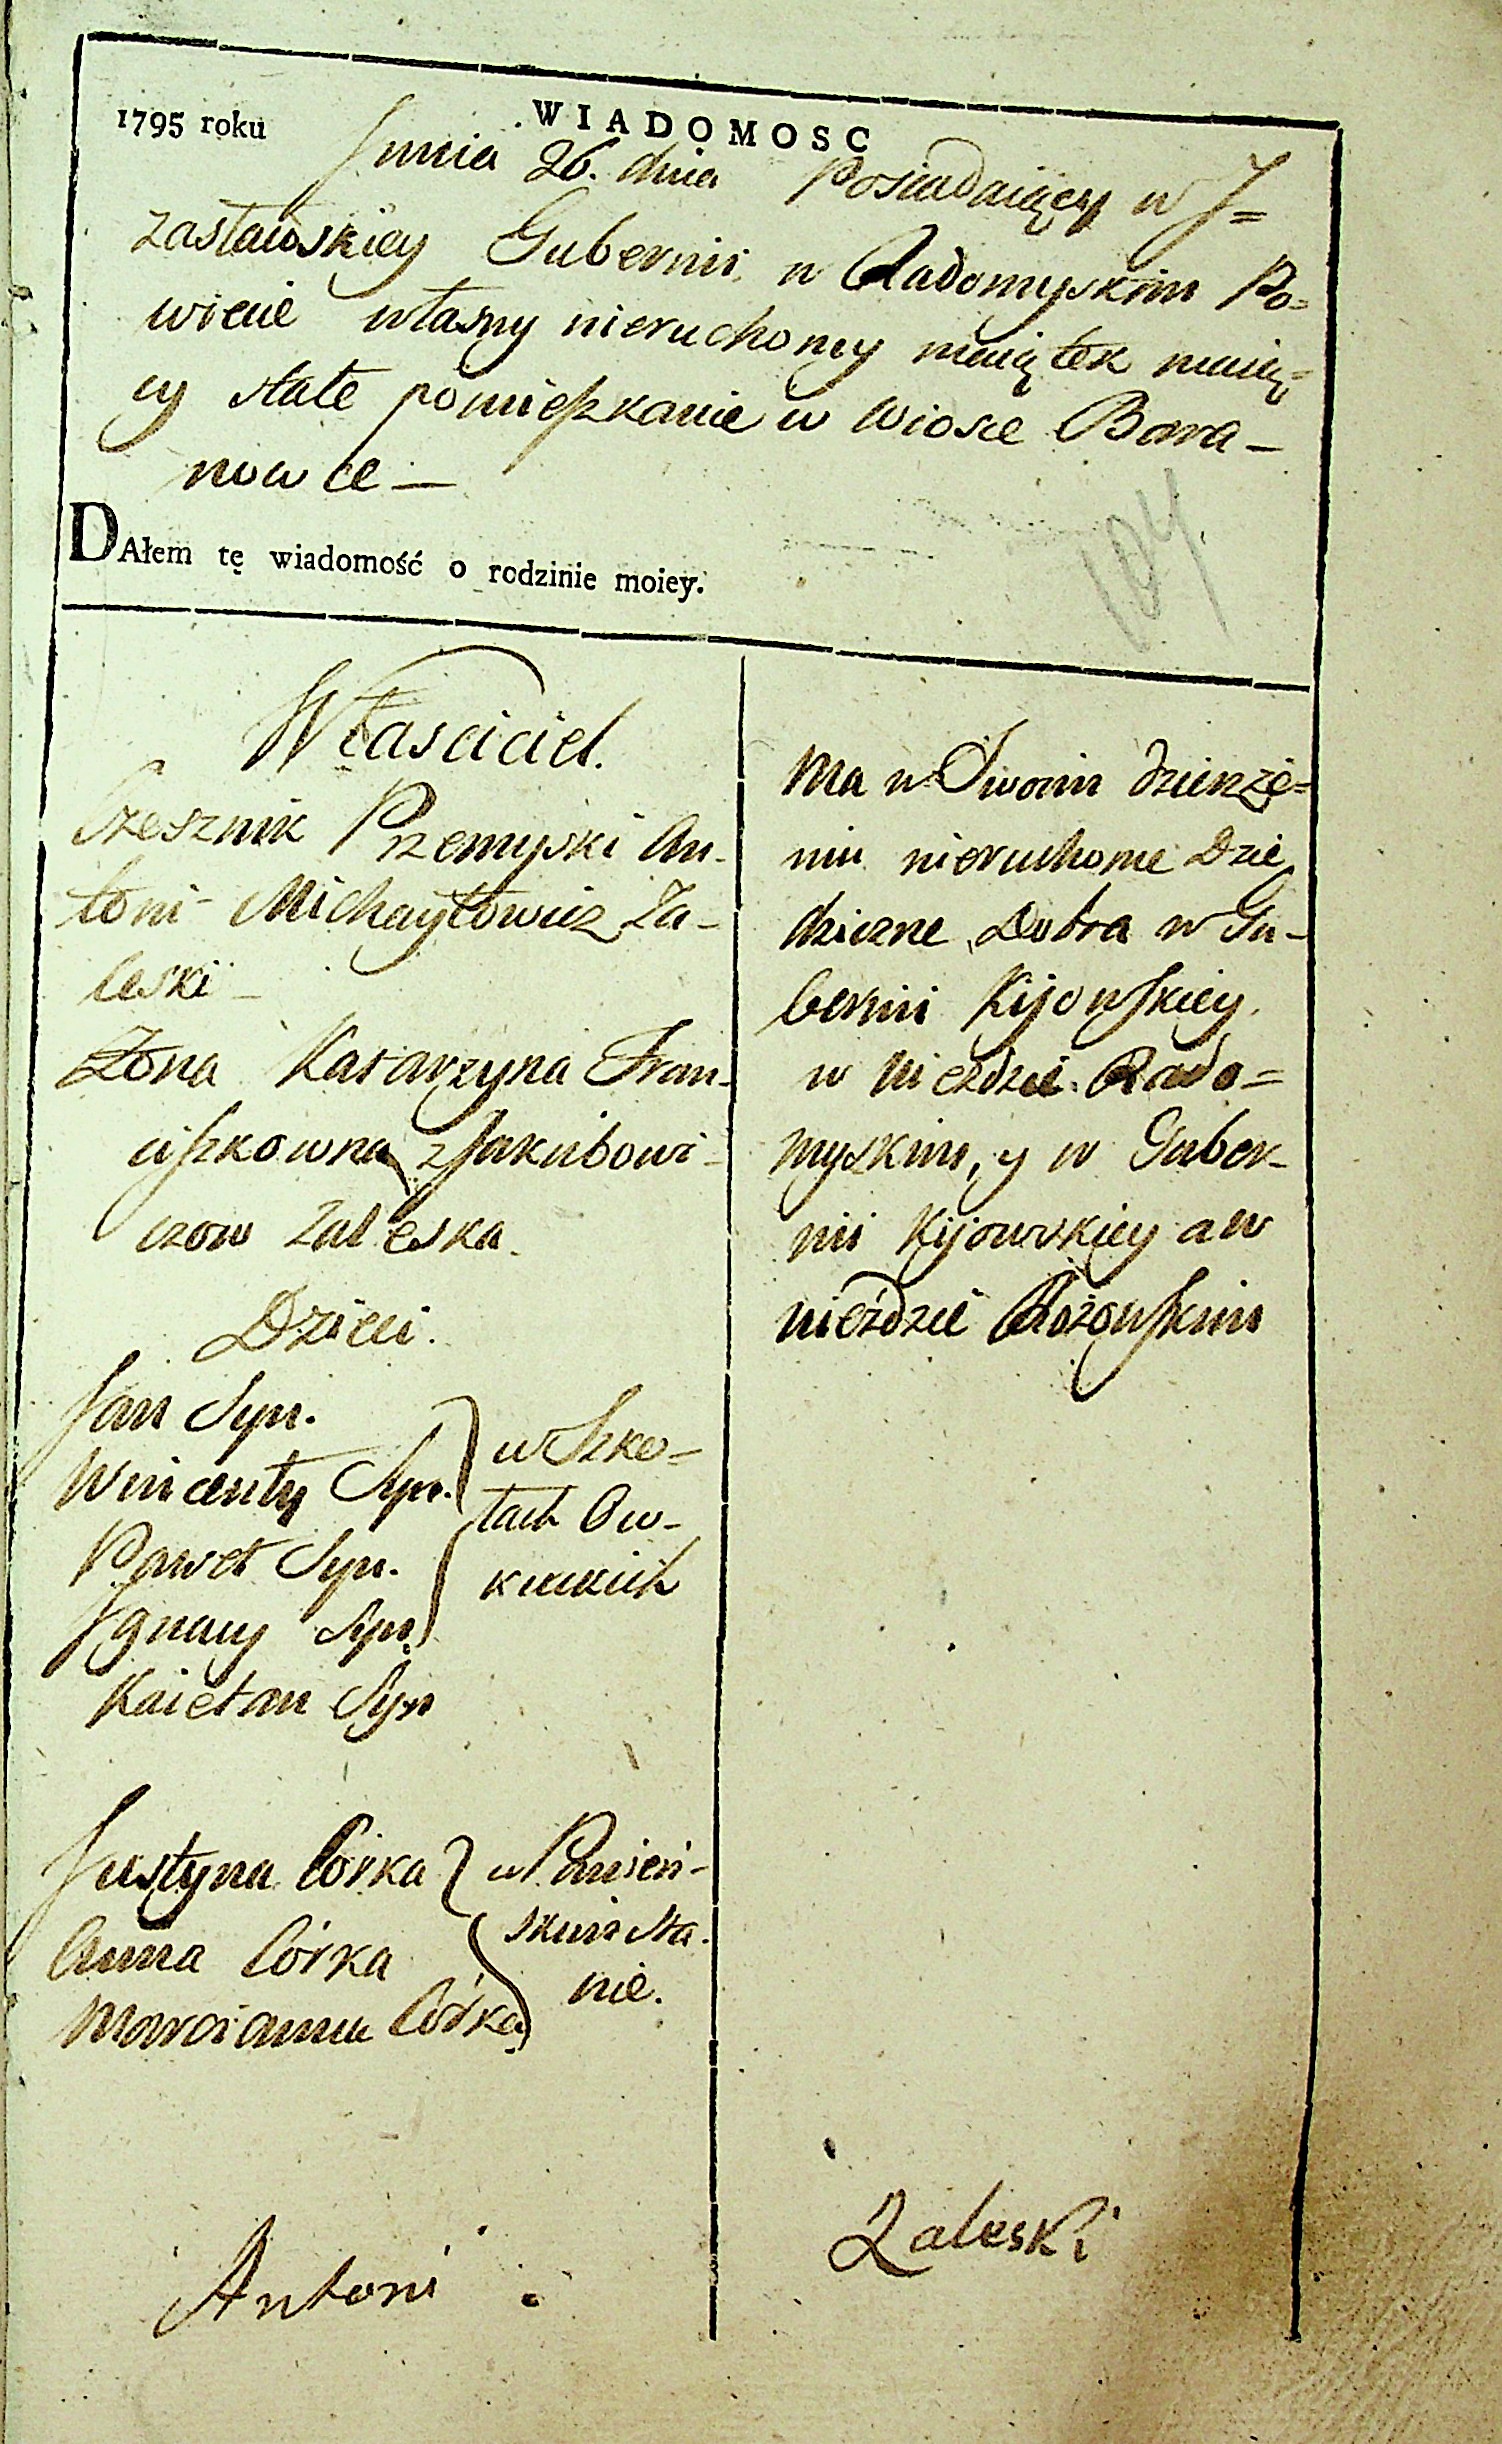 WIADOMOSC
1795 roku Junia 26. dnia Posiadaiący w J=
zasławskiey Gubernii w Radomyskim Po=
wiecie własny nieruchomy maiątek maią=
cy stałe pomieszkanie w wiosce Bara-
nowce -
DAłem tę wiadomość o rodzinie moiey.
104
Własciciel.
Czesznik Przemyski An-
toni Michayłowicz Za-
leski -
Żona Katarzyna Fran-
ciszkowna z Jakubowi-
czow Zaleska.
Dzieci.
Jan Syn.
Wincenty Syn.
Paweł Syn.
Ignacy Syn.
Kaietan Syn
w Szko=
łach Ow-
kich
Justyna Córka
Anna Córka
Marcianna Córka
w Panień-
skim sta-
nie.
Ma w Swoim dzierże=
niu nieruchome Dzie
dziczne Dobra w Gu-
bernii Kijowskiey.
w Uiezdzie Rado=
myskim, y w Guber-
nii Kijowskiey a w
Uieździe
Antoni
Zaleski